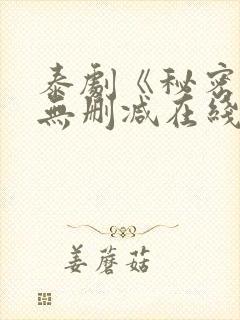 泰劇《秘密
無刪减在綫
姜蘑菇